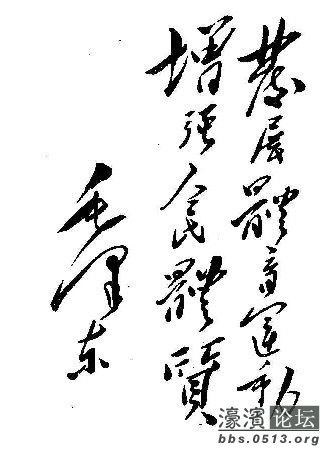 發展體育運動
增强人民體質
毛泽东
濠濱论坛
bbs.0513.org